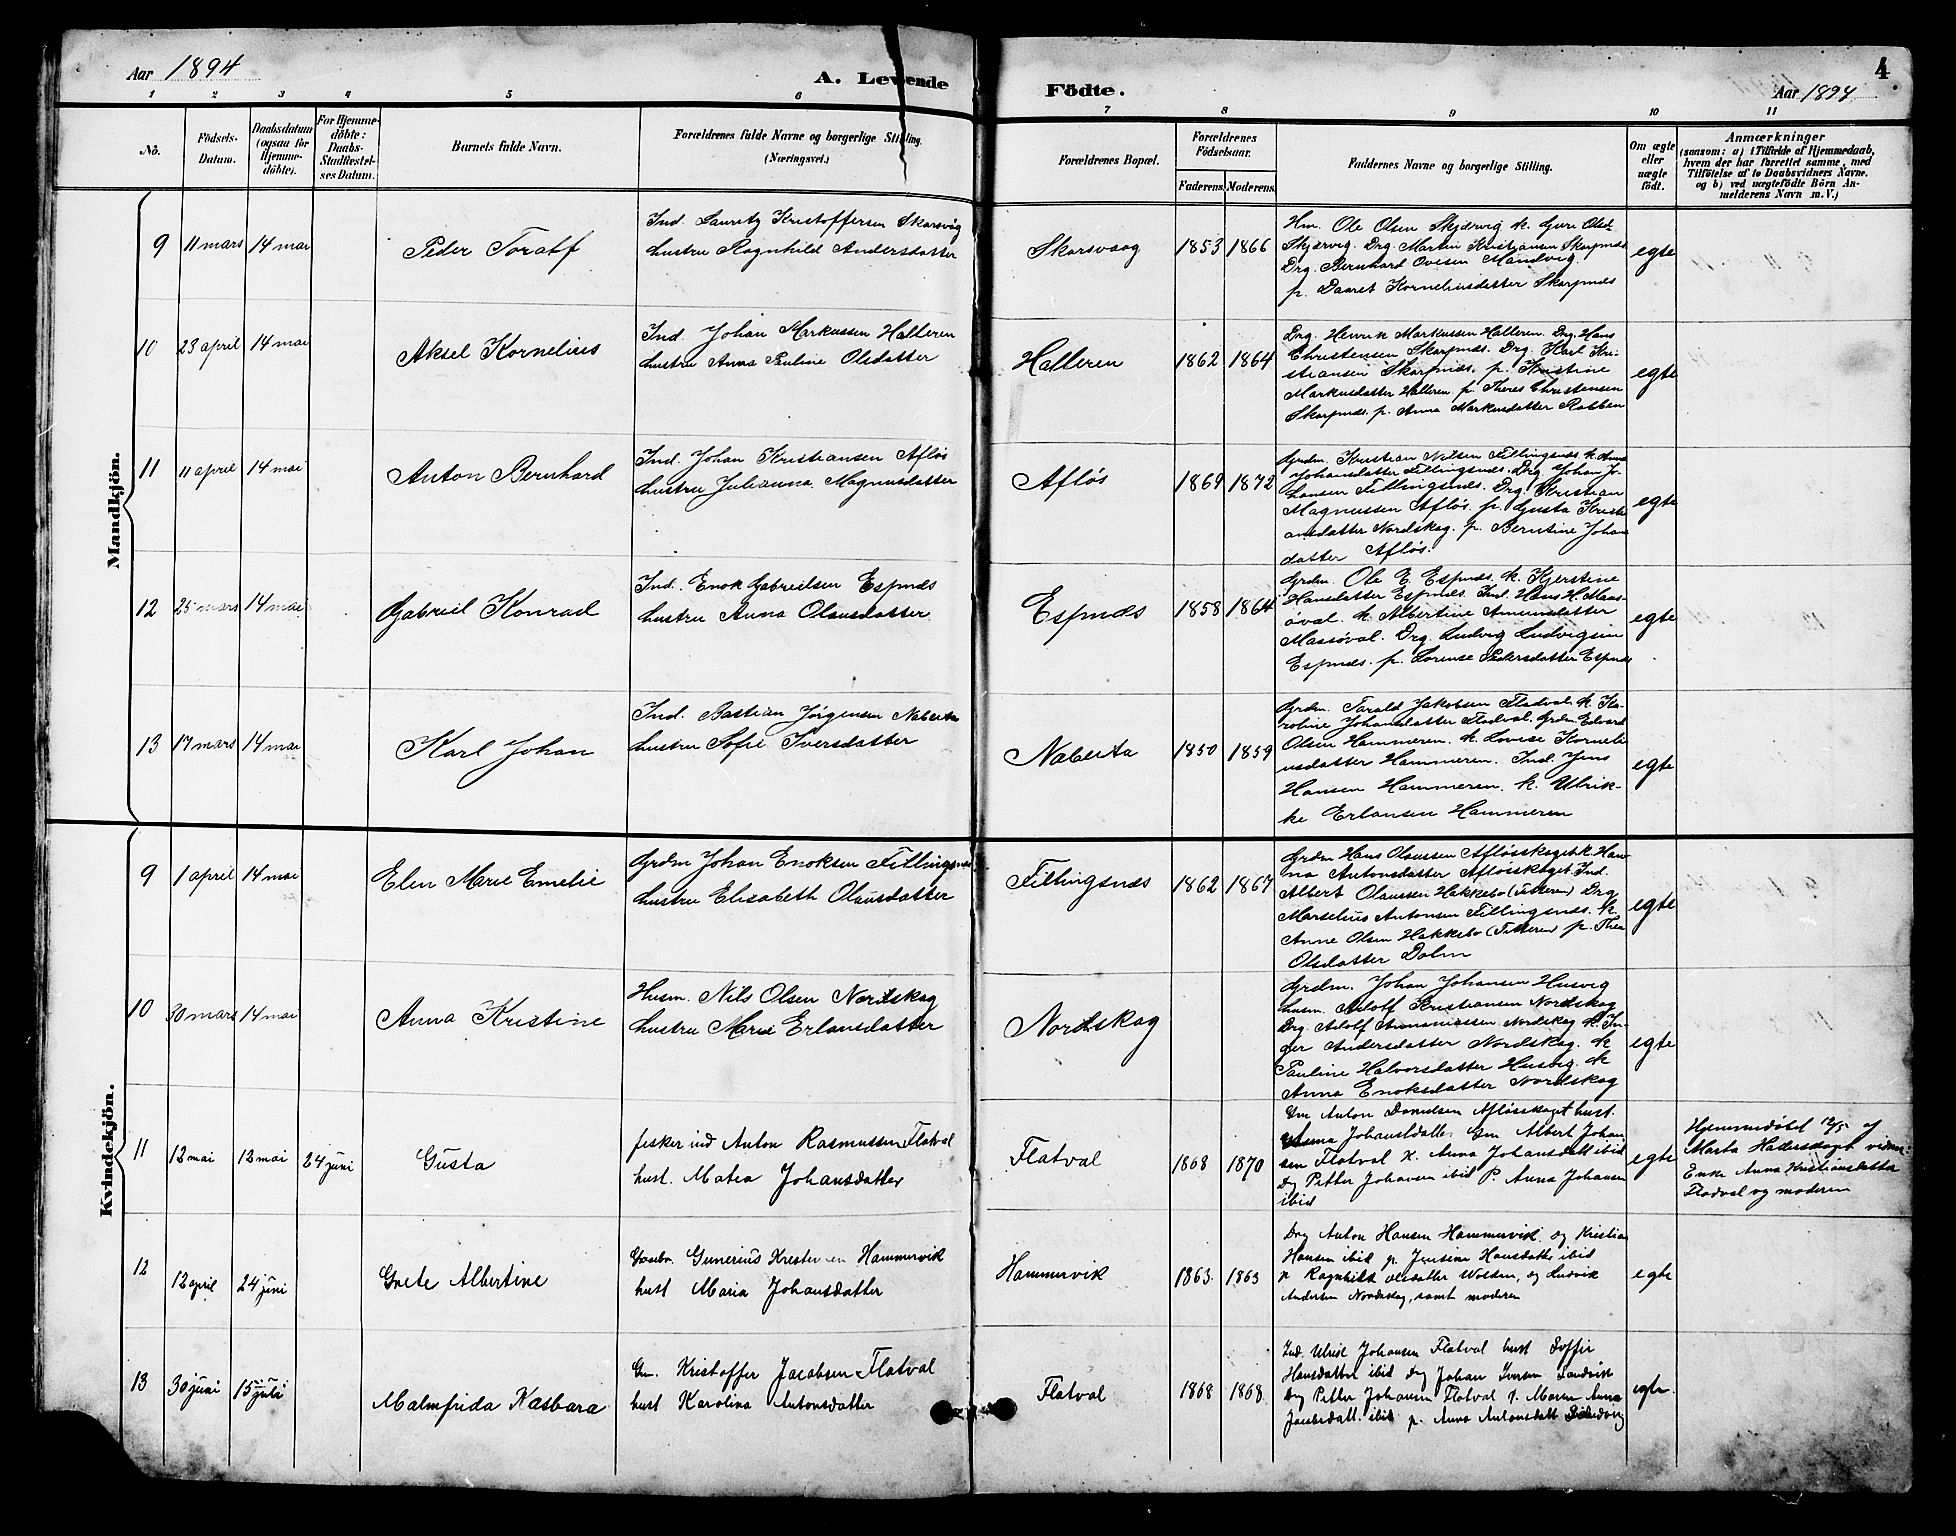 Aar 1894
A. Levende
Födte.
4
Aar 1894
1 2 3 4 5 6 7 8 9 10 11
No.
Födsels-
Datum.
Daabsdatum
(ogsaa for
Hjemme-
döbte).
For Hjemme-
döbte:
Daabs-
Stadfæstel-
ses Datum.
Barnets fulde Navn.
Forældrenes fulde Navne og borgerlige Stilling.
(Næringsvei.)
Forældrenes Bopæl.
Forældrenes
Födselsaar.
Faderens. Moderens.
Faddernes Navne og borgerlige Stilling.
Om ægte
eller
uægte
födt.
Anmærkninger
(saasom: a) i Tilfælde af Hjemmedaab,
hvem der har forrettet samme, med
Tilföielse af to Daabsvidners Navne.
og b) ved uægtefödte Börn An-
melderens Navn m. V.)
Mandkjön.
9 11 mars 14 mai Peder Toralf
Ind. Lauritz Kristoffersen Skarsvåg
hustru Ragnhild Andersdatter
Skarsvaag 1853 1866
Hm. Ole Olsen Skjærvig k. Guri Olsd.
Skjærvig. Drg. Martin Kristiansen Skarpnæs
Drg. Bernhard Ovesen Mandvig
p. Daaret Korneliusdatter Skarpnæs
egte
10 23 april 14 mai Aksel Kornelius
Ind. Johan Markussen Halleren
hustru Anna Pauline Olsdatter
Halleren 1862 1864
Drg. Henrik Markussen Halleren. Drg. Hans
Christensen Skarpnæs. Drg. Karl Kri-
stiansen Skarpnæs. p. Kristine
Markusdatter Halleren p. Theres Christensen
Skarpnæs. p. Anna Markusdatter Rabben
egte
11 11 april 14 mai Anton Bernhard
Ind. Johan Kristiansen Afløs
hustru Julianna Magnusdatter
Afløs 1869 1872
Grdm. Kristian Nilsen Fillingsnæs. k. Anna
Johansdatter Fillingsnæs. Drg. Johan Jo-
hansen Fillingsnæs. Drg. Kristian
Magnussen Afløs. p. Gusta Kristi-
ansdatter Nordskag. p. Berntine Johan
datter Afløs.
egte
12 25 mars 14 mai Gabriel Konrad
Ind. Enok Gabrielsen Espnæs
hustru Anna Olausdatter
Espnæs 1858 1864
Grdm. Ole E. Espnæs. k. Kjerstine
Hansdatter Espnæs. Ind. Hans H. Maas-
øval. k. Albertine Amunsdatter
Massøval. Drg. Ludvig Ludvigsen
Espnæs. p. Lorense Pedersdatter Espnæs
egte
13 17 mars 14 mai Karl Johan
Ind. Bastian Jørgensen Nabeita
hustru Sofie Iversdatter
Nabeita 1850 1859
Grdm. Tarald Jakobsen Fladval. k. Ka-
roline Johansdatter Fladval. Grdm. Edvard
Olsen Hammeren. k. Lovise Korneli
usdatter Hammeren. Ind. Jens
Hansen Hammeren. k. Ulrik-
ke Erlansen Hammeren
egte
Kvindekjön.
9 1 april 14 mai Elen Marie Emelie
Grdm Johan Enoksen Fillingsnæs
hustru Elisabeth Olausdatter
Fillingsnæs 1862 1867
Grdm Hans Olaussen Afløsskaget k. Han
na Antonsdatter Afløsskaget. Ind.
Albert Olaussen Hakkebo (Fitteren) Drg
Marselius Antonsen Fillingsnæs. k.
Anne Olsen Hakkebo (Fitteren) p. Thea
Olsdatter Dolm
egte
10 30 mars 14 mai Anna Kristine
Husm. Nils Olsen Nordskag
hustru Marie Erlansdatter
Nordskag
Grdm. Johan Johansen Husvig
husm. Adolf Kristiansen Nordskag
Drg Adolf Annaniassen Nordskag k. In-
ger Andersdatter Nordskag. k
Pauline Halvorsdatter Husvig. k
Anna Enoksdatter Nordskag
egte
11 12 mai 12 mai 24 juni Gusta
fisker ind Anton Rasmussen Flatval
hust. Matea Johansdatter
Flatval 1868 1870
Gm Anton Danielsen Afløsskaget hust.
Anna Johansdatter Gm Albert Johan
sen Flatval k. Anna Johansdatt ibid
Dg Petter Johansen ibid P. Anna Johansen
ibid
egte
Hjemmedøbt 12/5 af
Marta Hallersdagt vidner:
Enke Anna Kristiansdatter
Fladval og moderen
12 12 april 24 juni Grete Albertine
Gunerius Krestensen Hammervik
hust Maria Johansdatter
Hammervik 1863 1863
Drg Anton Hansen Hammervik og Kristian
Hansen ibid p. Jensine Hansdatter ibid
p Ragnhild olsdatter Wolden, og Ludvik
Andersen Nordskag, samt moderen
egte
13 30 juni 15 juli Malmfrida Kasbara
Gm. Kristoffer Jacobsen Flatval
hust Karolina Antonsdatter
Flatval 1868 1868
Ind. Ulrik Johansen Flatval hust Soffie
Hansdatter ibid Drg Johan Iversen Sandvik
Drg Petter Johansen Flatval p. Maren Anna
Jacobsdatt. ibid p. Anna Antonsdatt Sandvig
egte.